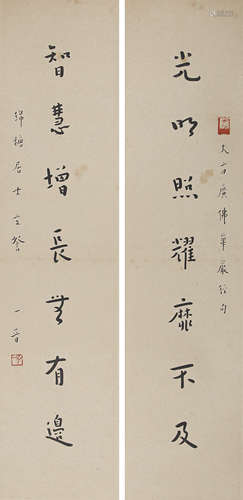 大方廣佛華嚴經句
光明照耀靡不及
智慧增長無有邊
居士
一音